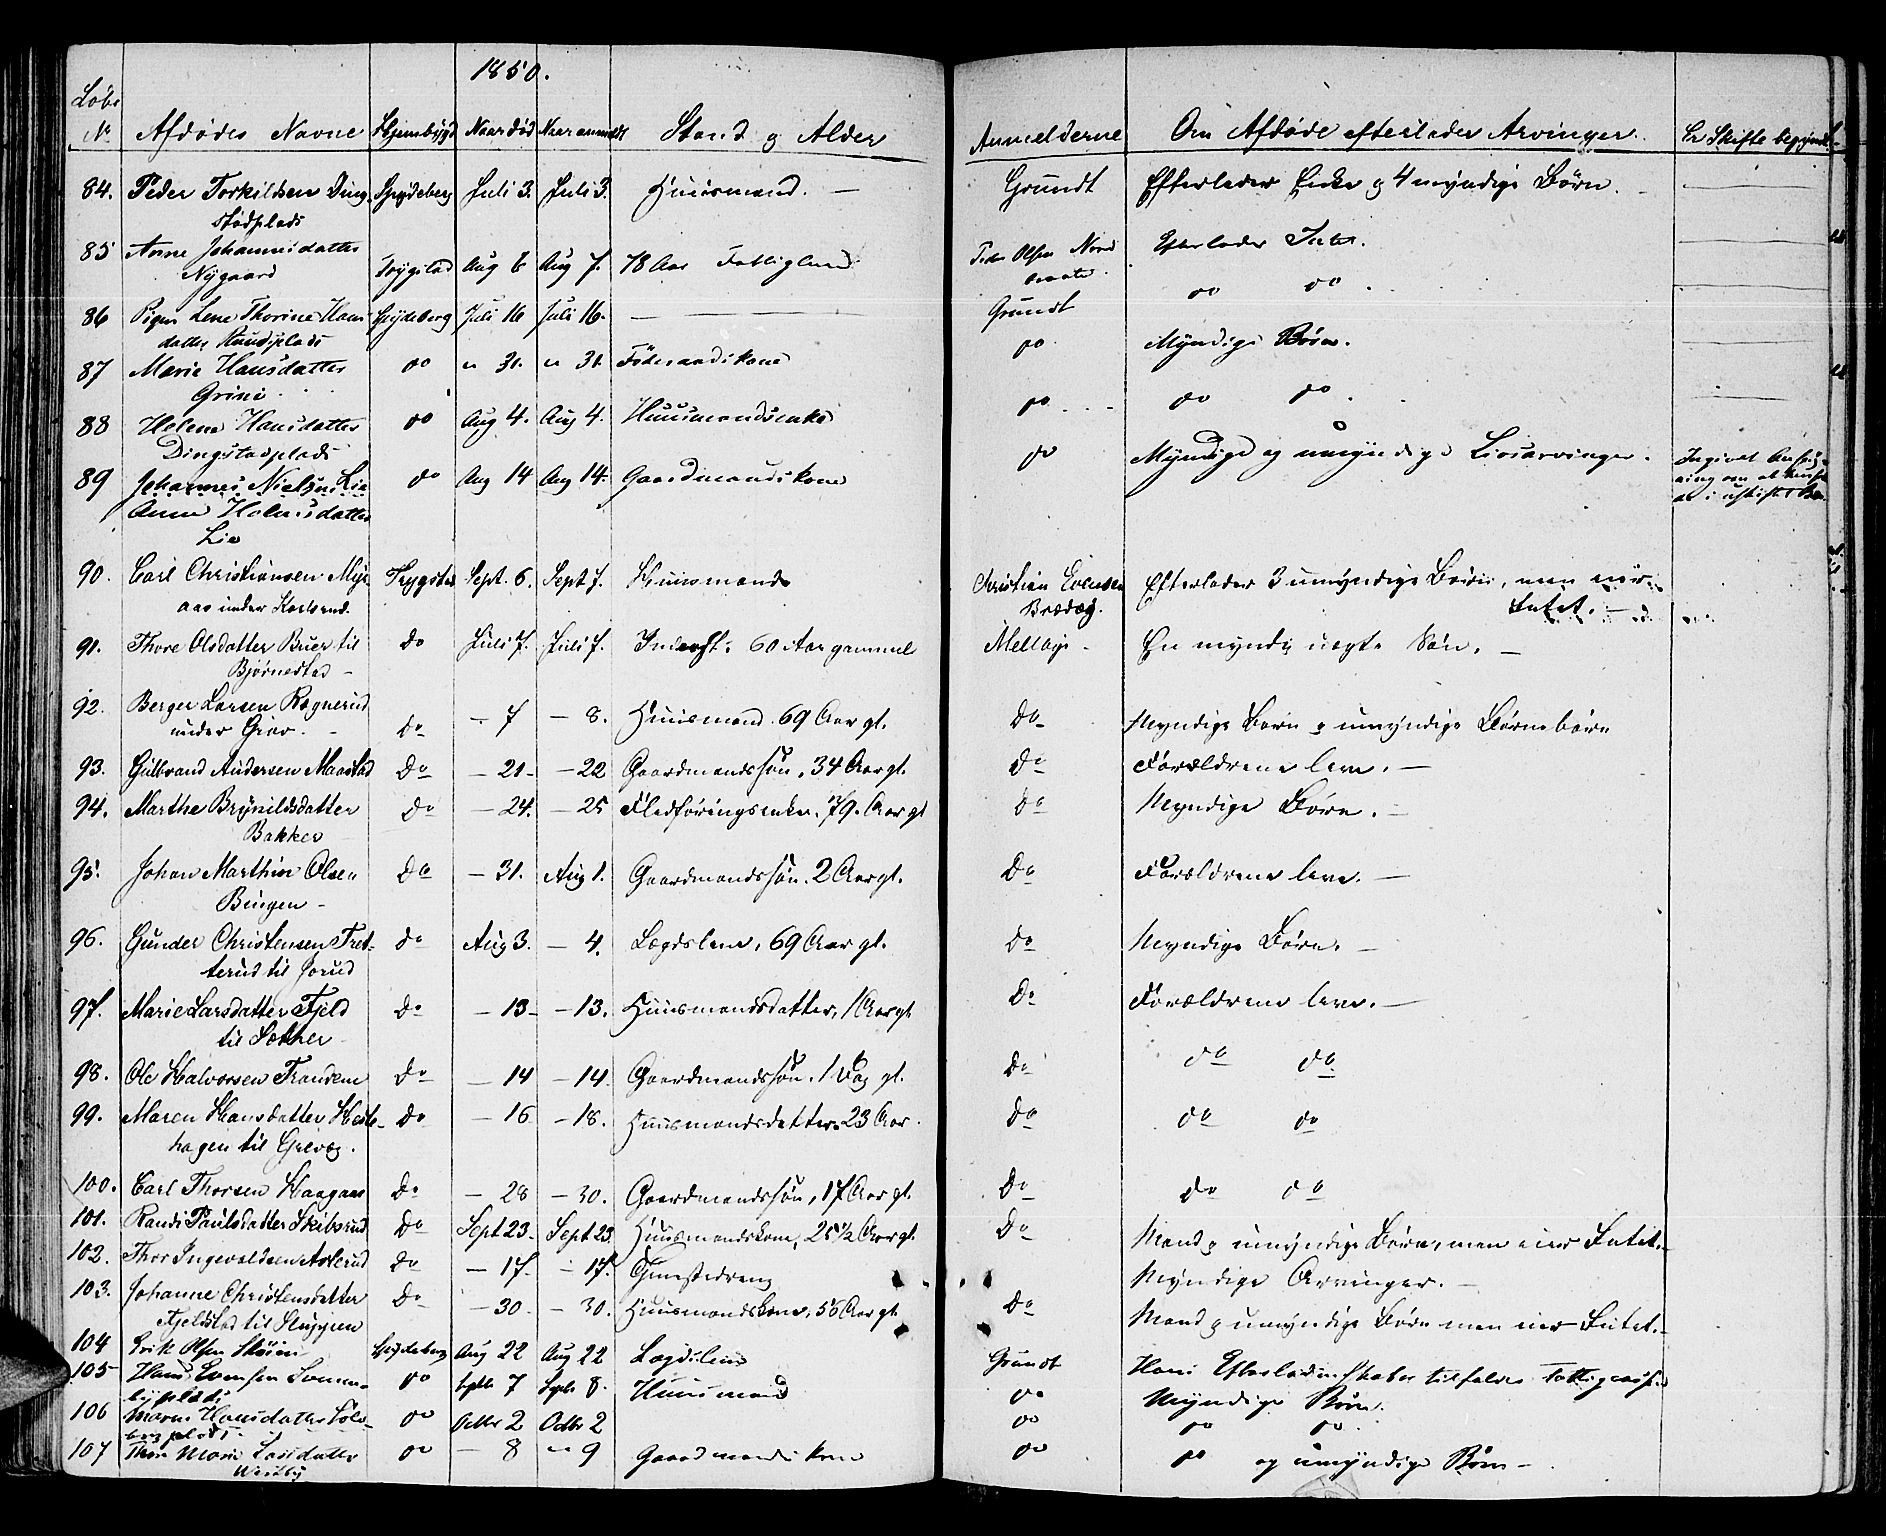 1850.
Løbe
No Afdødes Navne Hjembÿgd Naar død Naar anmeldt Stand og Alder Anmelderne Om Afdøde efterlader Arvinger. Er Skifte begyndt
84. Peder Torkildsen Ding- Spydeberg Juli 3. Juli 3. Huusmand. — Grundt Efterlader Enke og 4 myndige Børn. —
stadplads
85 Anne Johannesdatter Trygstad Aug 6 Aug 7. 78 Aar Fattiglem Peder Olsen Nord Efterlader Intet.
Nygaard
86 Pigen Lene Thorine Hans Spydeberg Juli 16 Juli 16. — Grundt do do.
datter Sundsplads
87 Marie Hansdatter do " 31. " 31. Føderaadskone do Myndige Børn.
Grini
88 Helene Hansdatter do Aug 4. Aug 4. Huusmandsenke do do do.
Dingstadplads
89 Johannes Nielsen Lie do Aug 14 Aug 14. Gaardmandskone do Myndige og umyndige Livsarvinger. Ingivet Ansøg-
ning om at hensidde
i uskiftet Bo.
Anne Holmsdatter
Lie
90. Carl Christiansen Myr- Trygstad Sept. 6. Sept 7. Huusmand Christian Evensen Efterlader 3 umyndige Børn, men eier
aas under Karlsrud. Brødeg. Intet. —
91. Thore Olsdatter Bruer til Do Juli 7. Juli 7. Inderst. 60 Aar gammel Mellbye En myndig uægte Søn. —
Bjørnestad —
92. Berger Larsen Ragnerud Do — 7 — 8. Huusmand. 69 Aar gl. Do Myndige Børn og umyndige Børnebørn
under Grav. —
93. Gulbrand Andersen Maastad Do — 21 — 22 Gaardmandssøn, 34 Aar gl. Do Forældrene leve. —
94. Marthe Brynildsdatter Do — 24. — 25 Fledføringsenke, 79. Aar gl Do Myndige Børn. —
Bakker
95. Johan Marthin Olsen Do — 31. Aug 1. Gaardmandssøn. 2 Aar gl. Do Forældrene leve. —
Bingen —
96. Gunder Christensen Tret- Do Aug 3. — 4. Lægdslem, 69 Aar gl. Do Myndige Børn. —
terud til Jorud
97. Marie Larsdatter Fjeld Do — 13 — 13. Huusmandsdatter, 1 Aar gl Do Forældrene leve. —
til Sæther
98. Ole Halvorsen Frandem Do — 14 — 14. Gaardmandssøn. 1 Dag gl. Do do do
99. Maren Hansdatter Heste- Do — 16 — 18. Huusmandsdatter. 23 Aar. Do do do
hagen til Grevæg.
100. Carl Thorsen Haagaas Do — 28 — 30. Gaardmandssøn, 17 Aar gl. Do do do
101. Randi Paulsdatter Skibsrud Do Sept 23. Sept 23 Huusmandskone, 25 1/2 Aar gl. Do Mand og umyndige Børn, men eier Intet. —
102. Thor Ingevaldsen Asterud Do — 17. — 17. Tjenestedreng Myndige Arvinger. —
103. Johanne Christensdatter Do — 30 — 30. Huusmandskone, 56 Aar gl. Do Mand og umyndige Børn men eier Intet. —
Fjeldstad til Stuppen
104 Erik Olsen Skøien Spydeberg Aug 22 Aug 22 Lægdslem Grundt Hans Efterladenskaber tilfalder Fattigcassen
105 Hans Evensen Lunne- do Septb 7 Septb 8. Huusmand do Myndige Børn.
byplads
106 Maren Hansdatter Sol- do Octbr 2 Octbr 2 do do do.
berg plads.
107 Thea Marie Larsdatter do — 8 " 9 Gaardmandskone do do og umyndige Børn —
Westby